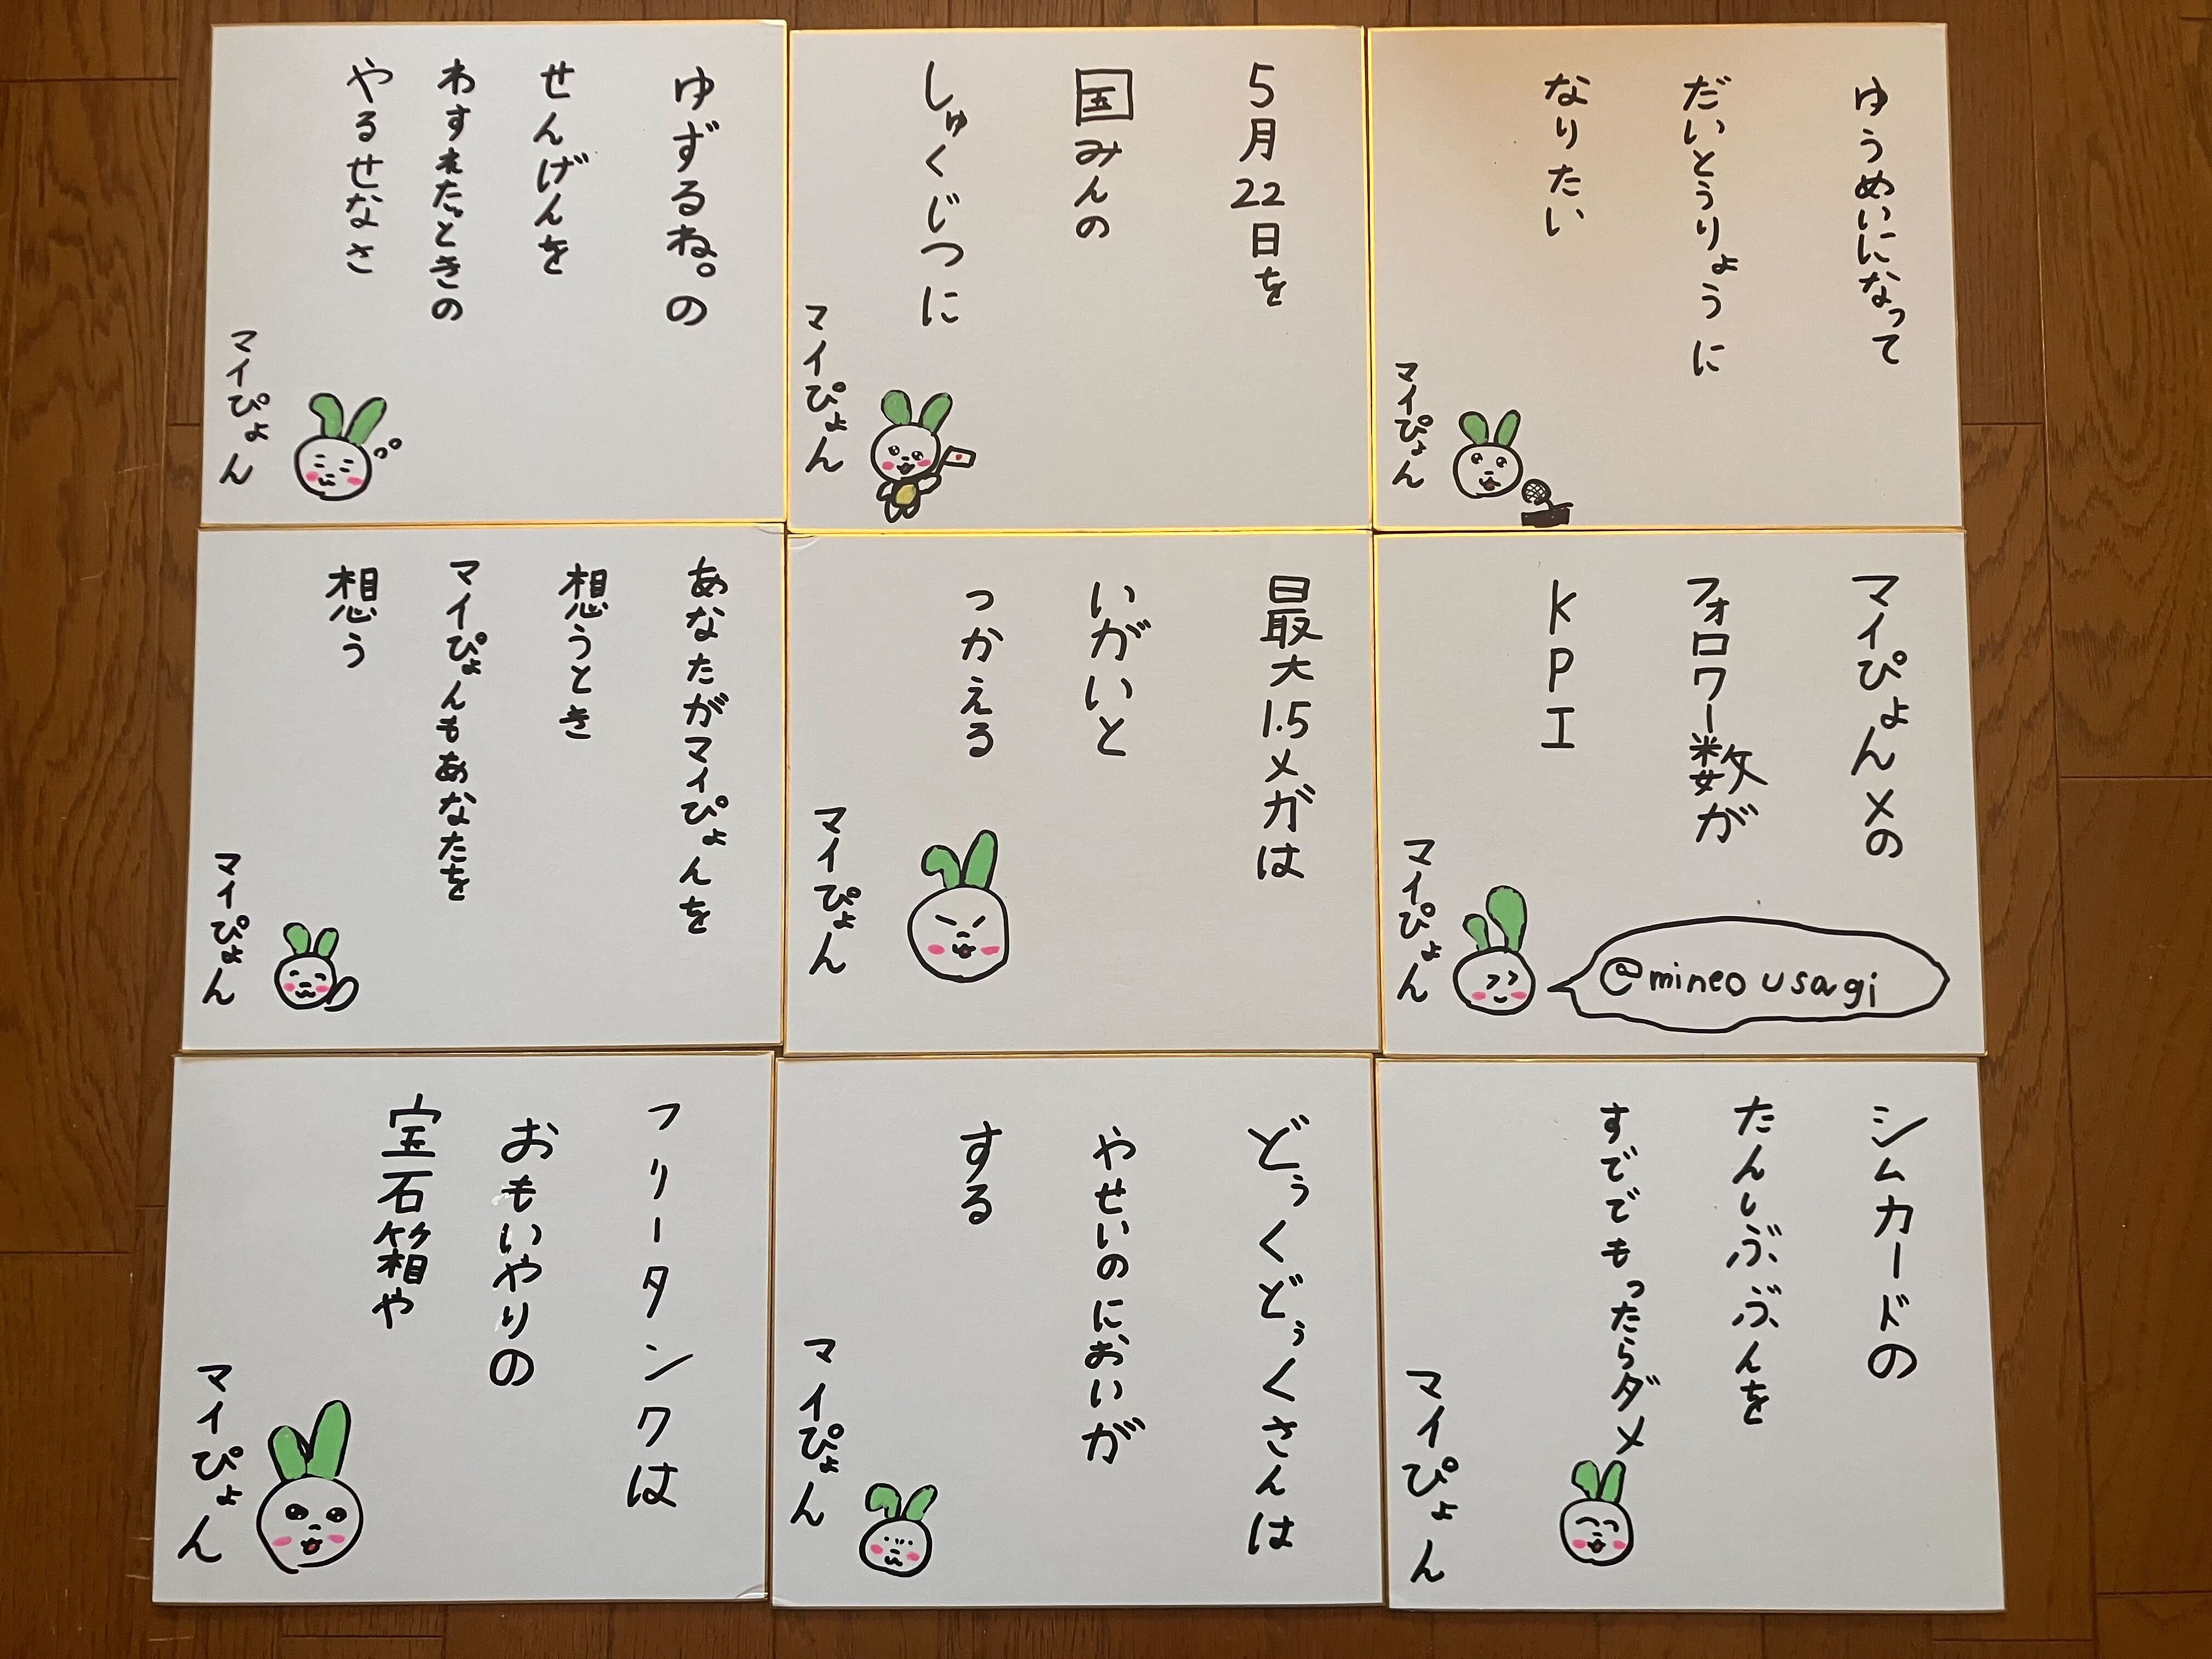 ゆうめいになって
だいとうりょうに
なりたい
マイぴょん
5月22日を
国みんの
しゅくじつに
マイぴょん
ゆずるね。の
せんげんを
わすれたときの
やるせなさ
マイぴょん
マイぴょんメの
フォロワー数が
KPI
@mineousagi
マイぴょん
最大1.5メガは
いがいと
つかえる
マイぴょん
あなたがマイぴょんを
想うとき
マイぴょんもあなたを
想う
マイぴょん
シムカードの
たんしぶぶんを
すででもったらダメ
マイぴょん
どぅくどぅくさんは
やせいのにおいが
する
マイぴょん
フリータンクは
おもいやりの
宝石箱や
マイぴょん